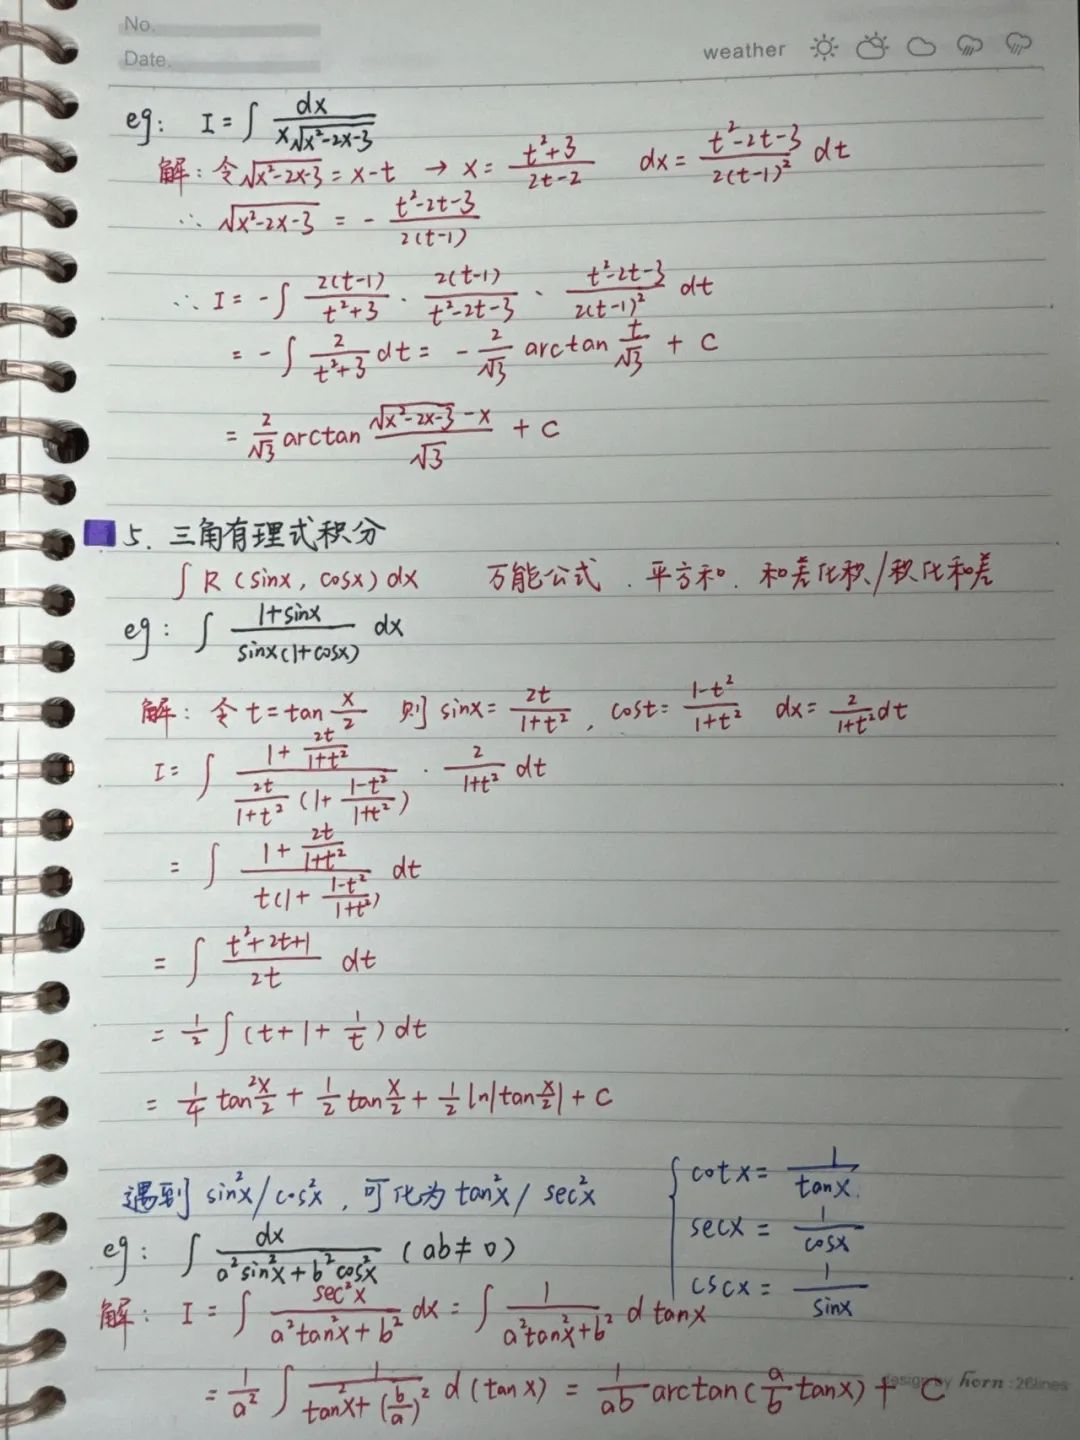 No.
Date.
weather
eg: I = ∫ dx / (x√(x²-2x-3))
解: 令 √(x²-2x-3) = x-t → x = (t²+3)/(2t-2)  dx = (t²-2t-3)/(2(t-1)²) dt
∴ √(x²-2x-3) = - (t²-2t-3)/(2(t-1))
∴ I = -∫ 2(t-1)/(t²+3) · 2(t-1)/(t²-2t-3) · (t²-2t-3)/(2(t-1)²) dt
= -∫ 2/(t²+3) dt = - 2/√3 arctan t/√3 + C
= 2/√3 arctan (√(x²-2x-3) - x)/√3 + C
5. 三角有理式积分
∫ R (sinx, cosx) dx 万能公式 . 平方和. 和差化积/积化和差
eg: ∫ (1+sinx)/(sinx(1+cosx)) dx
解: 令 t = tan x/2 则 sinx = 2t/(1+t²), cost = (1-t²)/(1+t²) dx = 2/(1+t²) dt
I = ∫ (1 + 2t/(1+t²)) / (2t/(1+t²) (1 + (1-t²)/(1+t²))) · 2/(1+t²) dt
= ∫ (1 + 2t/(1+t²)) / (t(1 + (1-t²)/(1+t²))) dt
= ∫ (t²+2t+1)/(2t) dt
= 1/2 ∫ (t+1+1/t) dt
= 1/4 tan² x/2 + 1/2 tan x/2 + 1/2 ln|tan x/2| + C
遇到 sin²x/cos²x, 可化为 tan²x/sec²x
cotx = 1/tanx.
secx = 1/cosx
cscx = 1/sinx
eg: ∫ dx/(a²sin²x + b²cos²x) (ab≠0)
解: I = ∫ sec²x/(a²tan²x + b²) dx = ∫ 1/(a²tan²x + b²) d tanx
= 1/a² ∫ 1/(tan²x + (b/a)²) d(tanx) = 1/ab arctan(a/b tanx) + C
design by horn : 26lines